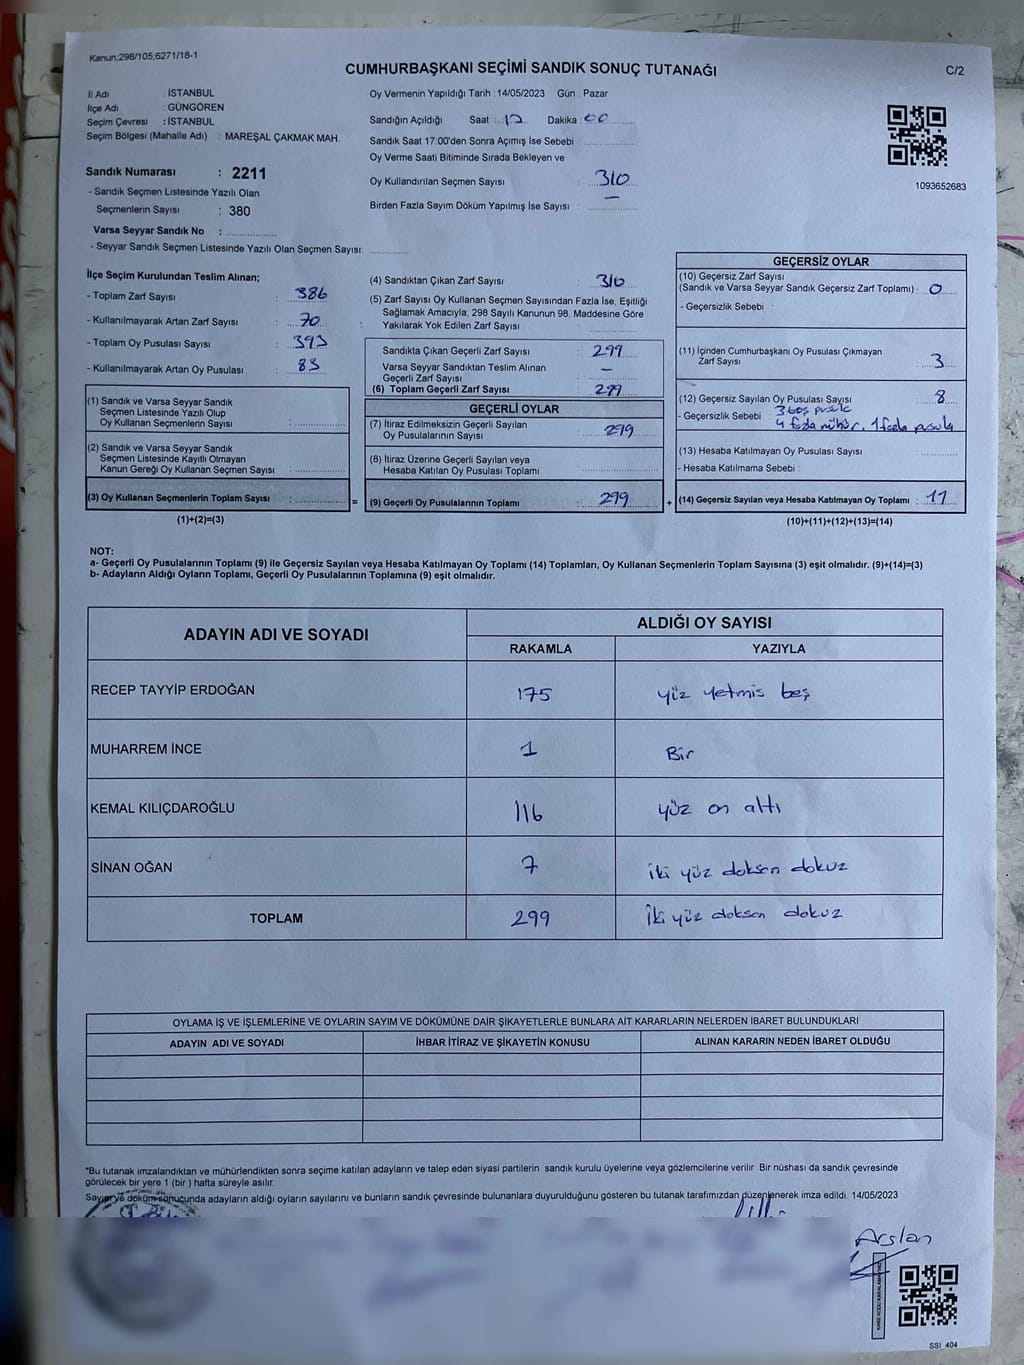 Kanun;298/105;6271/18-1
CUMHURBAŞKANI SEÇİMİ SANDIK SONUÇ TUTANAĞI
C/2
İl Adı : İSTANBUL
İlçe Adı : GÜNGÖREN
Seçim Çevresi : İSTANBUL
Seçim Bölgesi (Mahalle Adı) : MAREŞAL ÇAKMAK MAH.
Sandık Numarası : 2211
- Sandık Seçmen Listesinde Yazılı Olan
Seçmenlerin Sayısı : 380
Varsa Seyyar Sandık No :
- Seyyar Sandık Seçmen Listesinde Yazılı Olan Seçmen Sayısı:
Oy Vermenin Yapıldığı Tarih : 14/05/2023 Gün : Pazar
Sandığın Açıldığı Saat : 17 Dakika : 00
Sandık Saat 17:00'den Sonra Açımış İse Sebebi :
Oy Verme Saati Bitiminde Sırada Bekleyen ve
Oy Kullandırılan Seçmen Sayısı : 310
Birden Fazla Sayım Döküm Yapılmış İse Sayısı : —
1093652683
İlçe Seçim Kurulundan Teslim Alınan;
- Toplam Zarf Sayısı : 386
- Kullanılmayarak Artan Zarf Sayısı : 70
- Toplam Oy Pusulası Sayısı : 393
- Kullanılmayarak Artan Oy Pusulası : 83
(1) Sandık ve Varsa Seyyar Sandık
Seçmen Listesinde Yazılı Olup
Oy Kullanan Seçmenlerin Sayısı :
(2) Sandık ve Varsa Seyyar Sandık
Seçmen Listesinde Kayıtlı Olmayan
Kanun Gereği Oy Kullanan Seçmen Sayısı :
(3) Oy Kullanan Seçmenlerin Toplam Sayısı :
(1)+(2)=(3)
=
(4) Sandıktan Çıkan Zarf Sayısı : 310
(5) Zarf Sayısı Oy Kullanan Seçmen Sayısından Fazla İse, Eşitliği
Sağlamak Amacıyla; 298 Sayılı Kanunun 98. Maddesine Göre
Yakılarak Yok Edilen Zarf Sayısı :
Sandıkta Çıkan Geçerli Zarf Sayısı : 299
Varsa Seyyar Sandıktan Teslim Alınan
Geçerli Zarf Sayısı : —
(6) Toplam Geçerli Zarf Sayısı : 299
GEÇERLİ OYLAR
(7) İtiraz Edilmeksizin Geçerli Sayılan
Oy Pusulalarının Sayısı : 299
(8) İtiraz Üzerine Geçerli Sayılan veya
Hesaba Katılan Oy Pusulası Toplamı :
(9) Geçerli Oy Pusulalarının Toplamı : 299
+
GEÇERSİZ OYLAR
(10) Geçersiz Zarf Sayısı
(Sandık ve Varsa Seyyar Sandık Geçersiz Zarf Toplamı) : 0
- Geçersizlik Sebebi :
(11) İçinden Cumhurbaşkanı Oy Pusulası Çıkmayan
Zarf Sayısı : 3
(12) Geçersiz Sayılan Oy Pusulası Sayısı : 8
- Geçersizlik Sebebi : 3 boş pusula
4 fazla mühür, 1 fazla pusula
(13) Hesaba Katılmayan Oy Pusulası Sayısı :
- Hesaba Katılmama Sebebi :
(14) Geçersiz Sayılan veya Hesaba Katılmayan Oy Toplamı : 11
(10)+(11)+(12)+(13)=(14)
NOT:
a- Geçerli Oy Pusulalarının Toplamı (9) ile Geçersiz Sayılan veya Hesaba Katılmayan Oy Toplamı (14) Toplamları, Oy Kullanan Seçmenlerin Toplam Sayısına (3) eşit olmalıdır. (9)+(14)=(3)
b- Adayların Aldığı Oyların Toplamı, Geçerli Oy Pusulalarının Toplamına (9) eşit olmalıdır.
ADAYIN ADI VE SOYADI
ALDIĞI OY SAYISI
RAKAMLA YAZIYLA
RECEP TAYYİP ERDOĞAN 175 yüz yetmis beş
MUHARREM İNCE 1 Bir
KEMAL KILIÇDAROĞLU 116 yüz on altı
SİNAN OĞAN 7 iki yüz doksan dokuz
TOPLAM 299 İki yüz doksan dokuz
OYLAMA İŞ VE İŞLEMLERİNE VE OYLARIN SAYIM VE DÖKÜMÜNE DAİR ŞİKAYETLERLE BUNLARA AİT KARARLARIN NELERDEN İBARET BULUNDUKLARI
ADAYIN ADI VE SOYADI İHBAR İTİRAZ VE ŞİKAYETİN KONUSU ALINAN KARARIN NEDEN İBARET OLDUĞU
*Bu tutanak imzalandıktan ve mühürlendikten sonra seçime katılan adayların ve talep eden siyasi partilerin sandık kurulu üyelerine veya gözlemcilerine verilir. Bir nüshası da sandık çevresinde
görülecek bir yere 1 (bir ) hafta süreyle asılır.
Sayım ve döküm sonucunda adayların aldığı oyların sayılarını ve bunların sandık çevresinde bulunanlara duyurulduğunu gösteren bu tutanak tarafımızdan düzenlenerek imza edildi. 14/05/2023
Arslan
SSI_404